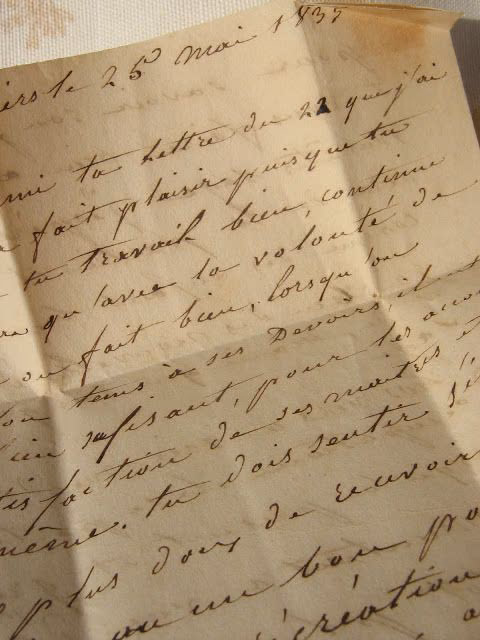 iers le 25 mai 183
mi ta lettre du 22 que j'ai
a fait plaisir puisque tu
tu travail bien, continue
re qu'avec la volonté de
on fait bien, lorsqu'on
on tems à ses Devoirs, il
bien sufisant, pour les
tisfaction de ses maitres
même. tu dois sentir
plus doux de recevoir
ou un bon
récréation